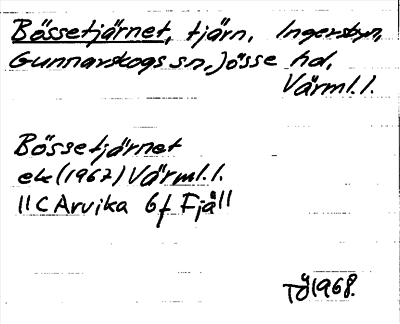 Bössetjärnet, tjärn, Ingersbyn,
Gunnarskogs sn, Jösse hd,
Värml.l.
Bössetjärnet
ek (1967) Värml.l.
11C Arvika 6f Fjäll
TJ 1968.